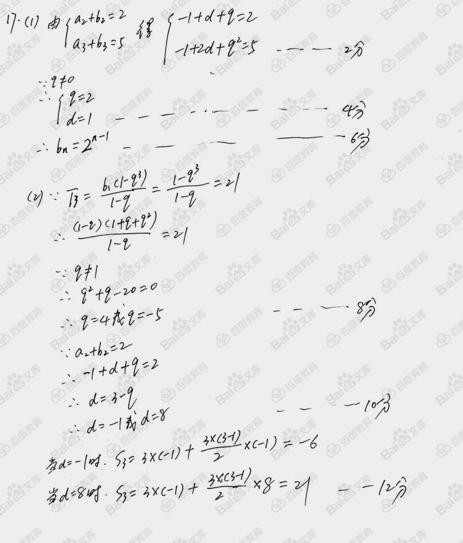 17.(1) 由{a₂+b₂=2 得 {-1+d+q=2
a₃+b₃=5 -1+2d+q²=5 ---- 2分
∵q≠0
∴{q=2
d=1 ---- 4分
∴bₙ=2ⁿ⁻¹ ---- 6分
(2) ∵T₃=b₁(1-q³)/(1-q)=(1-q³)/(1-q)=21
∴(1-q)(1+q+q²)/(1-q)=21
∵q≠1
∴q²+q-20=0
∴q=4或q=-5 ---- 8分
∵a₂+b₂=2
∴-1+d+q=2
∴d=3-q
∴d=-1或d=8 ---- 10分
当d=-1时. S₃=3×(-1)+3×(3-1)/2×(-1)=-6
当d=8时. S₃=3×(-1)+3×(3-1)/2×8=21 --12分